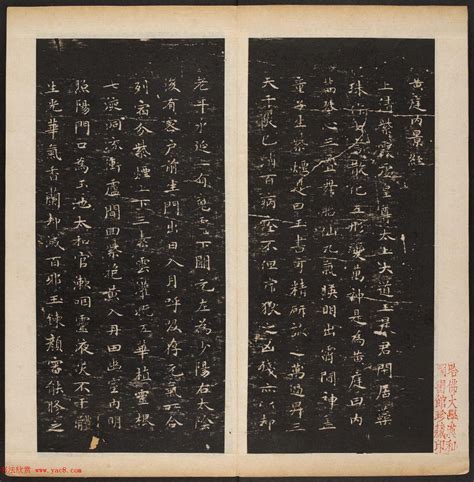 黄庭内景經
上清紫霞虛皇尊太上大道玉晨君閒居蕊
珠作七言散化五形變萬神是為黃庭曰内
篇琴心三疊舞胎仙九氣暎明出霄閒神蓋
童子生紫煙是曰玉書可精研詠之萬過昇三
天千灾已消百病痊不憚虎狼之凶殘亦以却
老年永延上有魂靈下關元左為少陽右太陰
後有密户前生門出日入月呼吸存元氣所合
列宿分紫煙上下三素雲灌溉五華植靈根
七液洞流衝廬間迴紫抱黄入丹田幽室内明
照陽門口為玉池太和官漱咽靈液灾不干體
生光華氣香蘭却滅百邪玉鍊顔審能修之
哈佛大學漢和
圖書館珍藏印
书法欣赏 www.yac8.com